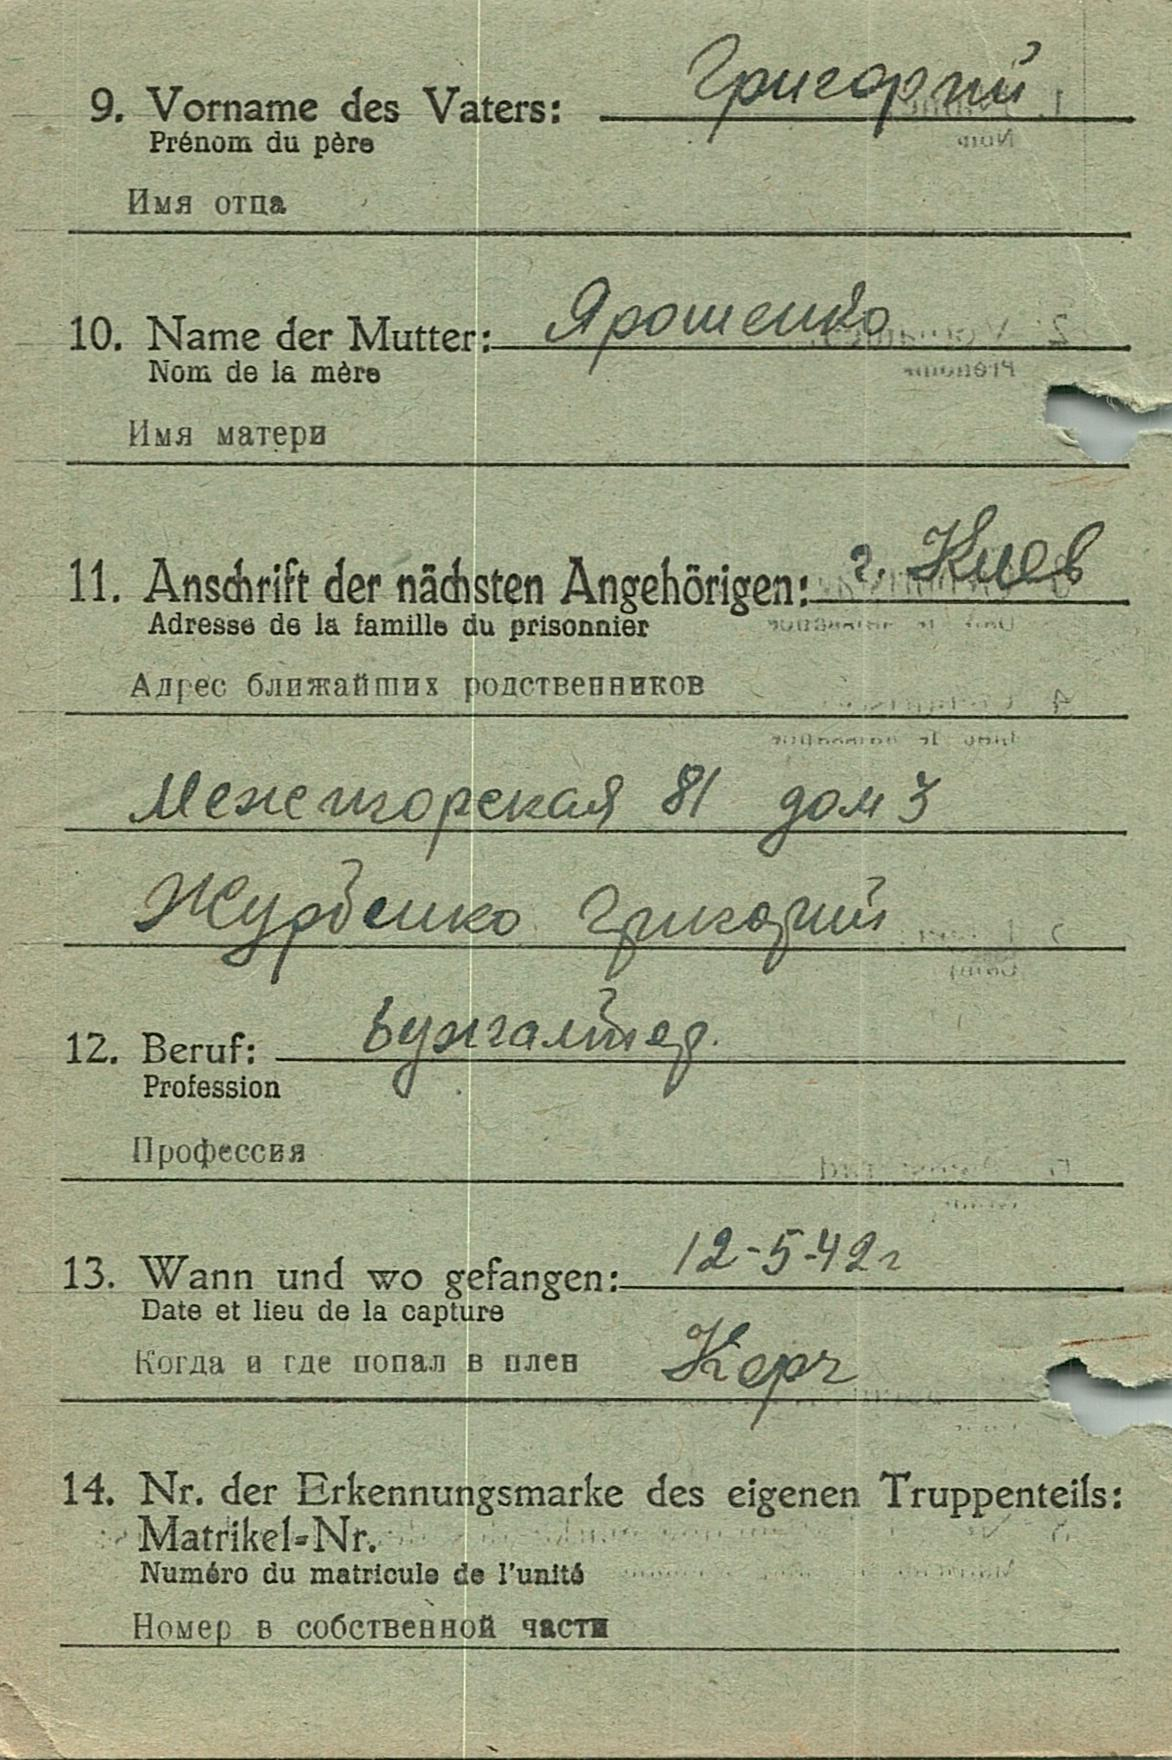 9. Vorname des Vaters: Григорий
Prénom du père
Имя отца
10. Name der Mutter: Ярошенко
Nom de la mère
Имя матери
11. Anschrift der nächsten Angehörigen: г. Киев
Adresse de la famille du prisonnier
Адрес ближайших родственников
Межигорская 81 дом 3
Журбенко Григорий
12. Beruf: Бухгалтер.
Profession
Профессия
13. Wann und wo gefangen: 12-5-42г
Date et lieu de la capture
Когда и где попал в плен Керч
14. Nr. der Erkennungsmarke des eigenen Truppenteils:
Matrikel-Nr.
Numéro du matricule de l'unité
Номер в собственной части